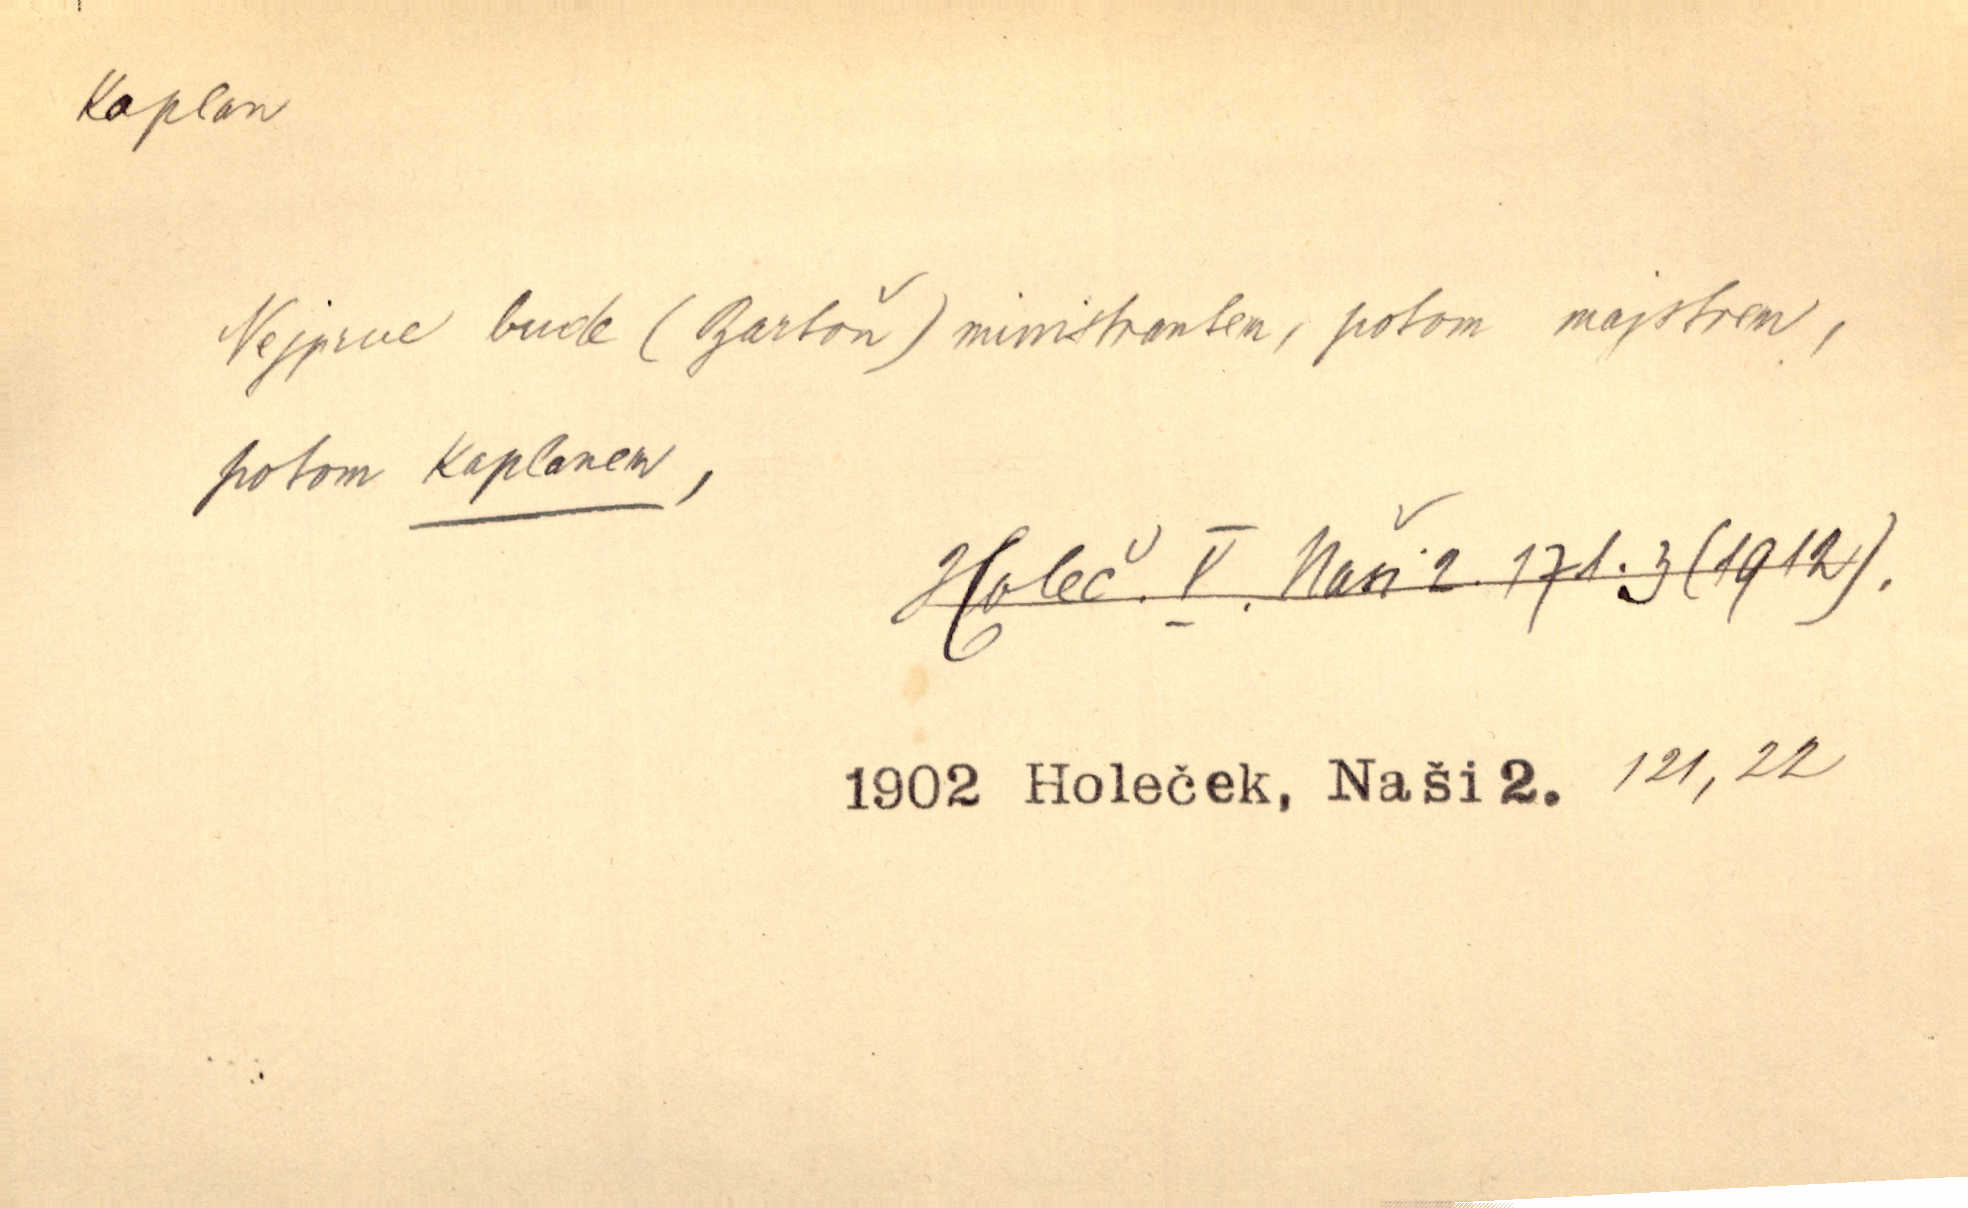 Kaplan
Nejprve bude (Bartoň) ministrantem, potom majstrem,
potom kaplanem,
Holeč. V. Naši 2. 171.3 (1912).
1902 Holeček, Naši 2. 121,22